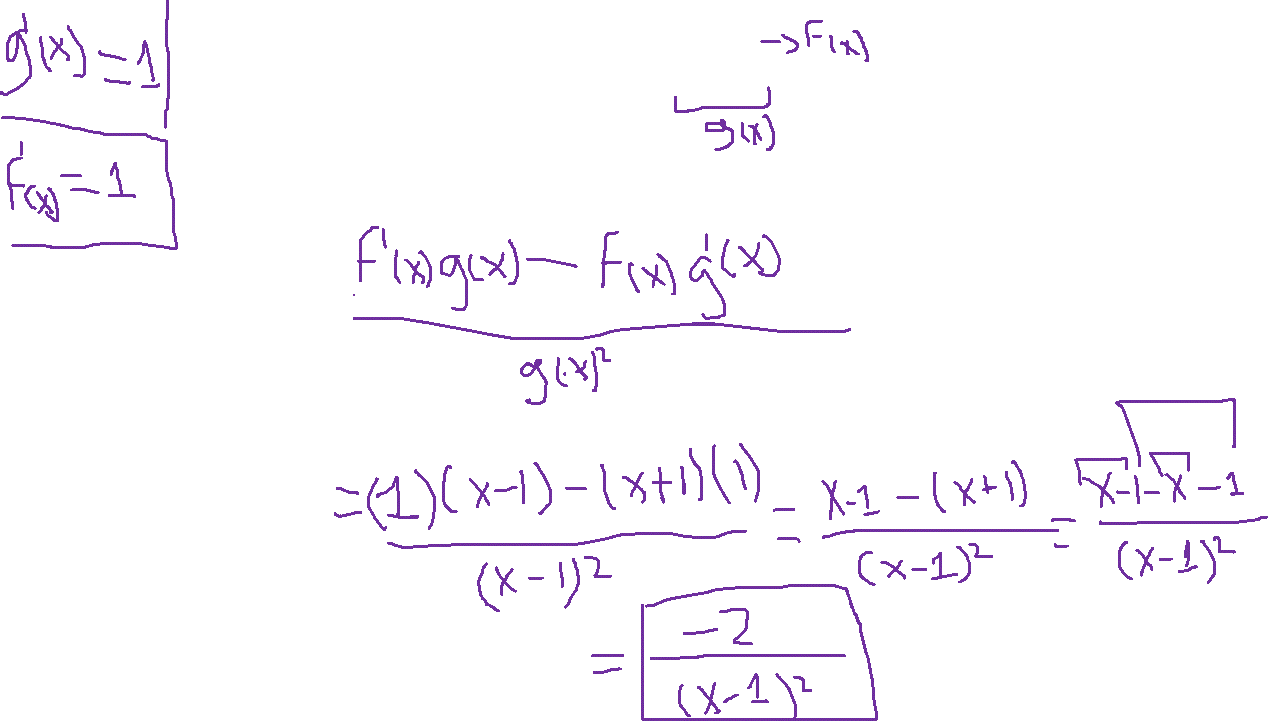 g'(x) = 1
F'(x) = 1
→ F(x)
g(x)
F'(x) g(x) — F(x) g'(x)
g(x)²
= (1)(x-1) - (x+1)(1) = x-1 - (x+1) = x-1-x-1
(x-1)² (x-1)² (x-1)²
= -2
(x-1)²